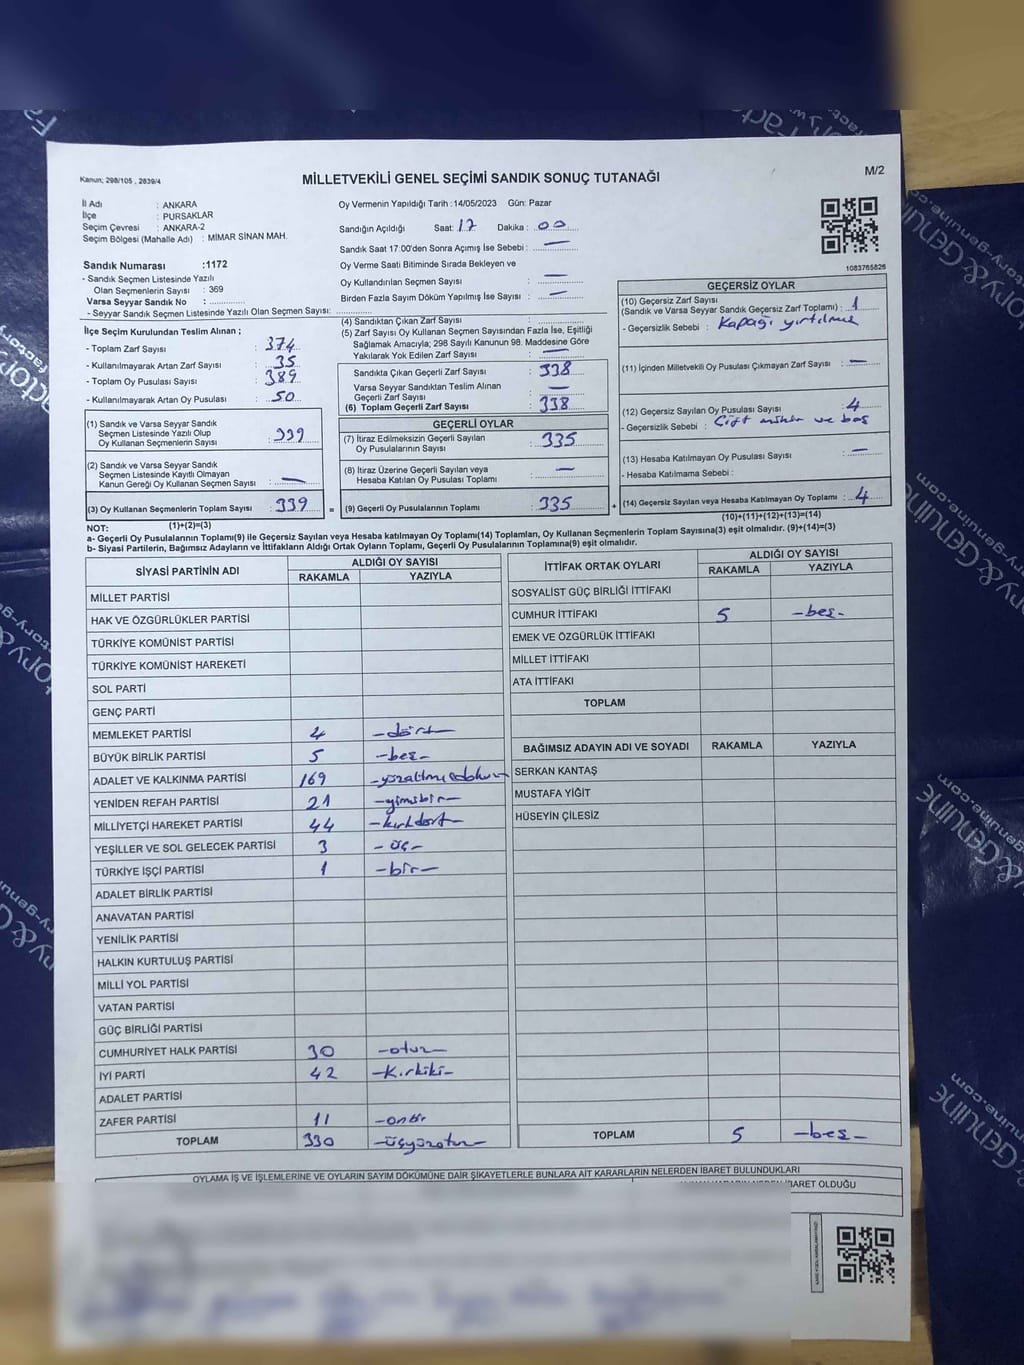 Kanun; 298/105 , 2839/4
MİLLETVEKİLİ GENEL SEÇİMİ SANDIK SONUÇ TUTANAĞI
M/2
İl Adı : ANKARA
İlçe : PURSAKLAR
Seçim Çevresi : ANKARA-2
Seçim Bölgesi (Mahalle Adı) : MİMAR SİNAN MAH.
Oy Vermenin Yapıldığı Tarih : 14/05/2023 Gün: Pazar
Sandığın Açıldığı Saat: 17 Dakika : 00
Sandık Saat 17:00'den Sonra Açımış İse Sebebi : —
Oy Verme Saati Bitiminde Sırada Bekleyen ve
Oy Kullandırılan Seçmen Sayısı : —
Birden Fazla Sayım Döküm Yapılmış İse Sayısı : —
1083765826
Sandık Numarası :1172
- Sandık Seçmen Listesinde Yazılı
Olan Seçmenlerin Sayısı : 369
Varsa Seyyar Sandık No : ..............
- Seyyar Sandık Seçmen Listesinde Yazılı Olan Seçmen Sayısı: ..............
İlçe Seçim Kurulundan Teslim Alınan ;
- Toplam Zarf Sayısı : 374
- Kullanılmayarak Artan Zarf Sayısı : 35
- Toplam Oy Pusulası Sayısı : 389
- Kullanılmayarak Artan Oy Pusulası : 50
(1) Sandık ve Varsa Seyyar Sandık
Seçmen Listesinde Yazılı Olup
Oy Kullanan Seçmenlerin Sayısı : 339
(2) Sandık ve Varsa Seyyar Sandık
Seçmen Listesinde Kayıtlı Olmayan
Kanun Gereği Oy Kullanan Seçmen Sayısı : —
(3) Oy Kullanan Seçmenlerin Toplam Sayısı : 339
(1)+(2)=(3)
(4) Sandıktan Çıkan Zarf Sayısı : ..............
(5) Zarf Sayısı Oy Kullanan Seçmen Sayısından Fazla İse, Eşitliği
Sağlamak Amacıyla; 298 Sayılı Kanunun 98. Maddesine Göre
Yakılarak Yok Edilen Zarf Sayısı : —
Sandıkta Çıkan Geçerli Zarf Sayısı : 338
Varsa Seyyar Sandıktan Teslim Alınan
Geçerli Zarf Sayısı : —
(6) Toplam Geçerli Zarf Sayısı : 338
GEÇERLİ OYLAR
(7) İtiraz Edilmeksizin Geçerli Sayılan
Oy Pusulalarının Sayısı : 335
(8) İtiraz Üzerine Geçerli Sayılan veya
Hesaba Katılan Oy Pusulası Toplamı : —
= (9) Geçerli Oy Pusulalarının Toplamı : 335
GEÇERSİZ OYLAR
(10) Geçersiz Zarf Sayısı
(Sandık ve Varsa Seyyar Sandık Geçersiz Zarf Toplamı) : 1
- Geçersizlik Sebebi : Kapağı yırtılmış
(11) İçinden Milletvekili Oy Pusulası Çıkmayan Zarf Sayısı : —
(12) Geçersiz Sayılan Oy Pusulası Sayısı : 4
- Geçersizlik Sebebi : Çift mühür ve boş
(13) Hesaba Katılmayan Oy Pusulası Sayısı : —
- Hesaba Katılmama Sebebi :
+ (14) Geçersiz Sayılan veya Hesaba Katılmayan Oy Toplamı : 4
(10)+(11)+(12)+(13)=(14)
NOT:
a- Geçerli Oy Pusulalarının Toplamı(9) ile Geçersiz Sayılan veya Hesaba katılmayan Oy Toplamı(14) Toplamları, Oy Kullanan Seçmenlerin Toplam Sayısına(3) eşit olmalıdır. (9)+(14)=(3)
b- Siyasi Partilerin, Bağımsız Adayların ve İttifakların Aldığı Ortak Oyların Toplamı, Geçerli Oy Pusulalarının Toplamına(9) eşit olmalıdır.
SİYASİ PARTİNİN ADI ALDIĞI OY SAYISI
RAKAMLA YAZIYLA
MİLLET PARTİSİ
HAK VE ÖZGÜRLÜKLER PARTİSİ
TÜRKİYE KOMÜNİST PARTİSİ
TÜRKİYE KOMÜNİST HAREKETİ
SOL PARTİ
GENÇ PARTİ
MEMLEKET PARTİSİ 4 -dört-
BÜYÜK BİRLİK PARTİSİ 5 -beş-
ADALET VE KALKINMA PARTİSİ 169 -yüzaltmışdokuz-
YENİDEN REFAH PARTİSİ 21 -yirmibir-
MİLLİYETÇİ HAREKET PARTİSİ 44 -kırkdört-
YEŞİLLER VE SOL GELECEK PARTİSİ 3 -üç-
TÜRKİYE İŞÇİ PARTİSİ 1 -bir-
ADALET BİRLİK PARTİSİ
ANAVATAN PARTİSİ
YENİLİK PARTİSİ
HALKIN KURTULUŞ PARTİSİ
MİLLİ YOL PARTİSİ
VATAN PARTİSİ
GÜÇ BİRLİĞİ PARTİSİ
CUMHURİYET HALK PARTİSİ 30 -otuz-
İYİ PARTİ 42 -Kırkiki-
ADALET PARTİSİ
ZAFER PARTİSİ 11 -onbir-
TOPLAM 330 -üçyüzotuz-
İTTİFAK ORTAK OYLARI ALDIĞI OY SAYISI
RAKAMLA YAZIYLA
SOSYALİST GÜÇ BİRLİĞİ İTTİFAKI
CUMHUR İTTİFAKI 5 -beş-
EMEK VE ÖZGÜRLÜK İTTİFAKI
MİLLET İTTİFAKI
ATA İTTİFAKI
TOPLAM
BAĞIMSIZ ADAYIN ADI VE SOYADI RAKAMLA YAZIYLA
SERKAN KANTAŞ
MUSTAFA YİĞİT
HÜSEYİN ÇİLESİZ
TOPLAM 5 -beş-
OYLAMA İŞ VE İŞLEMLERİNE VE OYLARIN SAYIM DÖKÜMÜNE DAİR ŞİKAYETLERLE BUNLARA AİT KARARLARIN NELERDEN İBARET BULUNDUKLARI
İBARET OLDUĞU